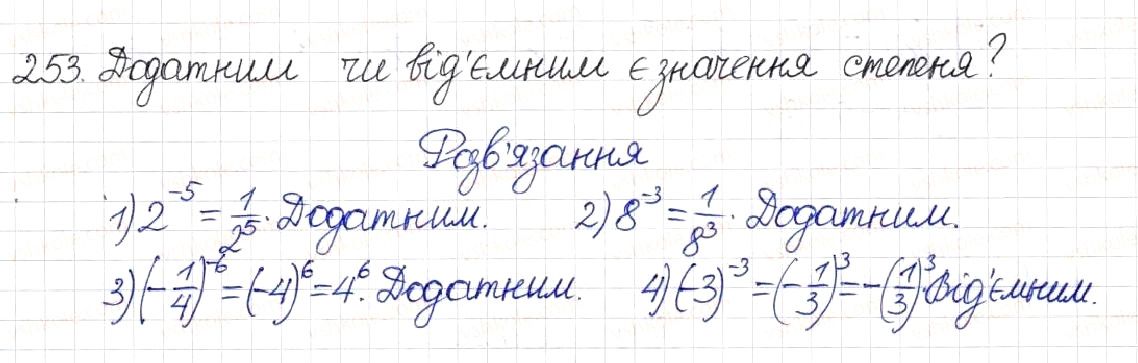 253. Додатним чи від'ємним є значення степеня?
Розв'язання
1) 2^{-5} = \frac{1}{2^5}. Додатним. 2) 8^{-3} = \frac{1}{8^3}. Додатним.
3) (-\frac{1}{4})^{-6} = (-4)^6 = 4^6. Додатним. 4) (-3)^{-3} = (-\frac{1}{3})^3 = -(\frac{1}{3})^3. Від'ємним.